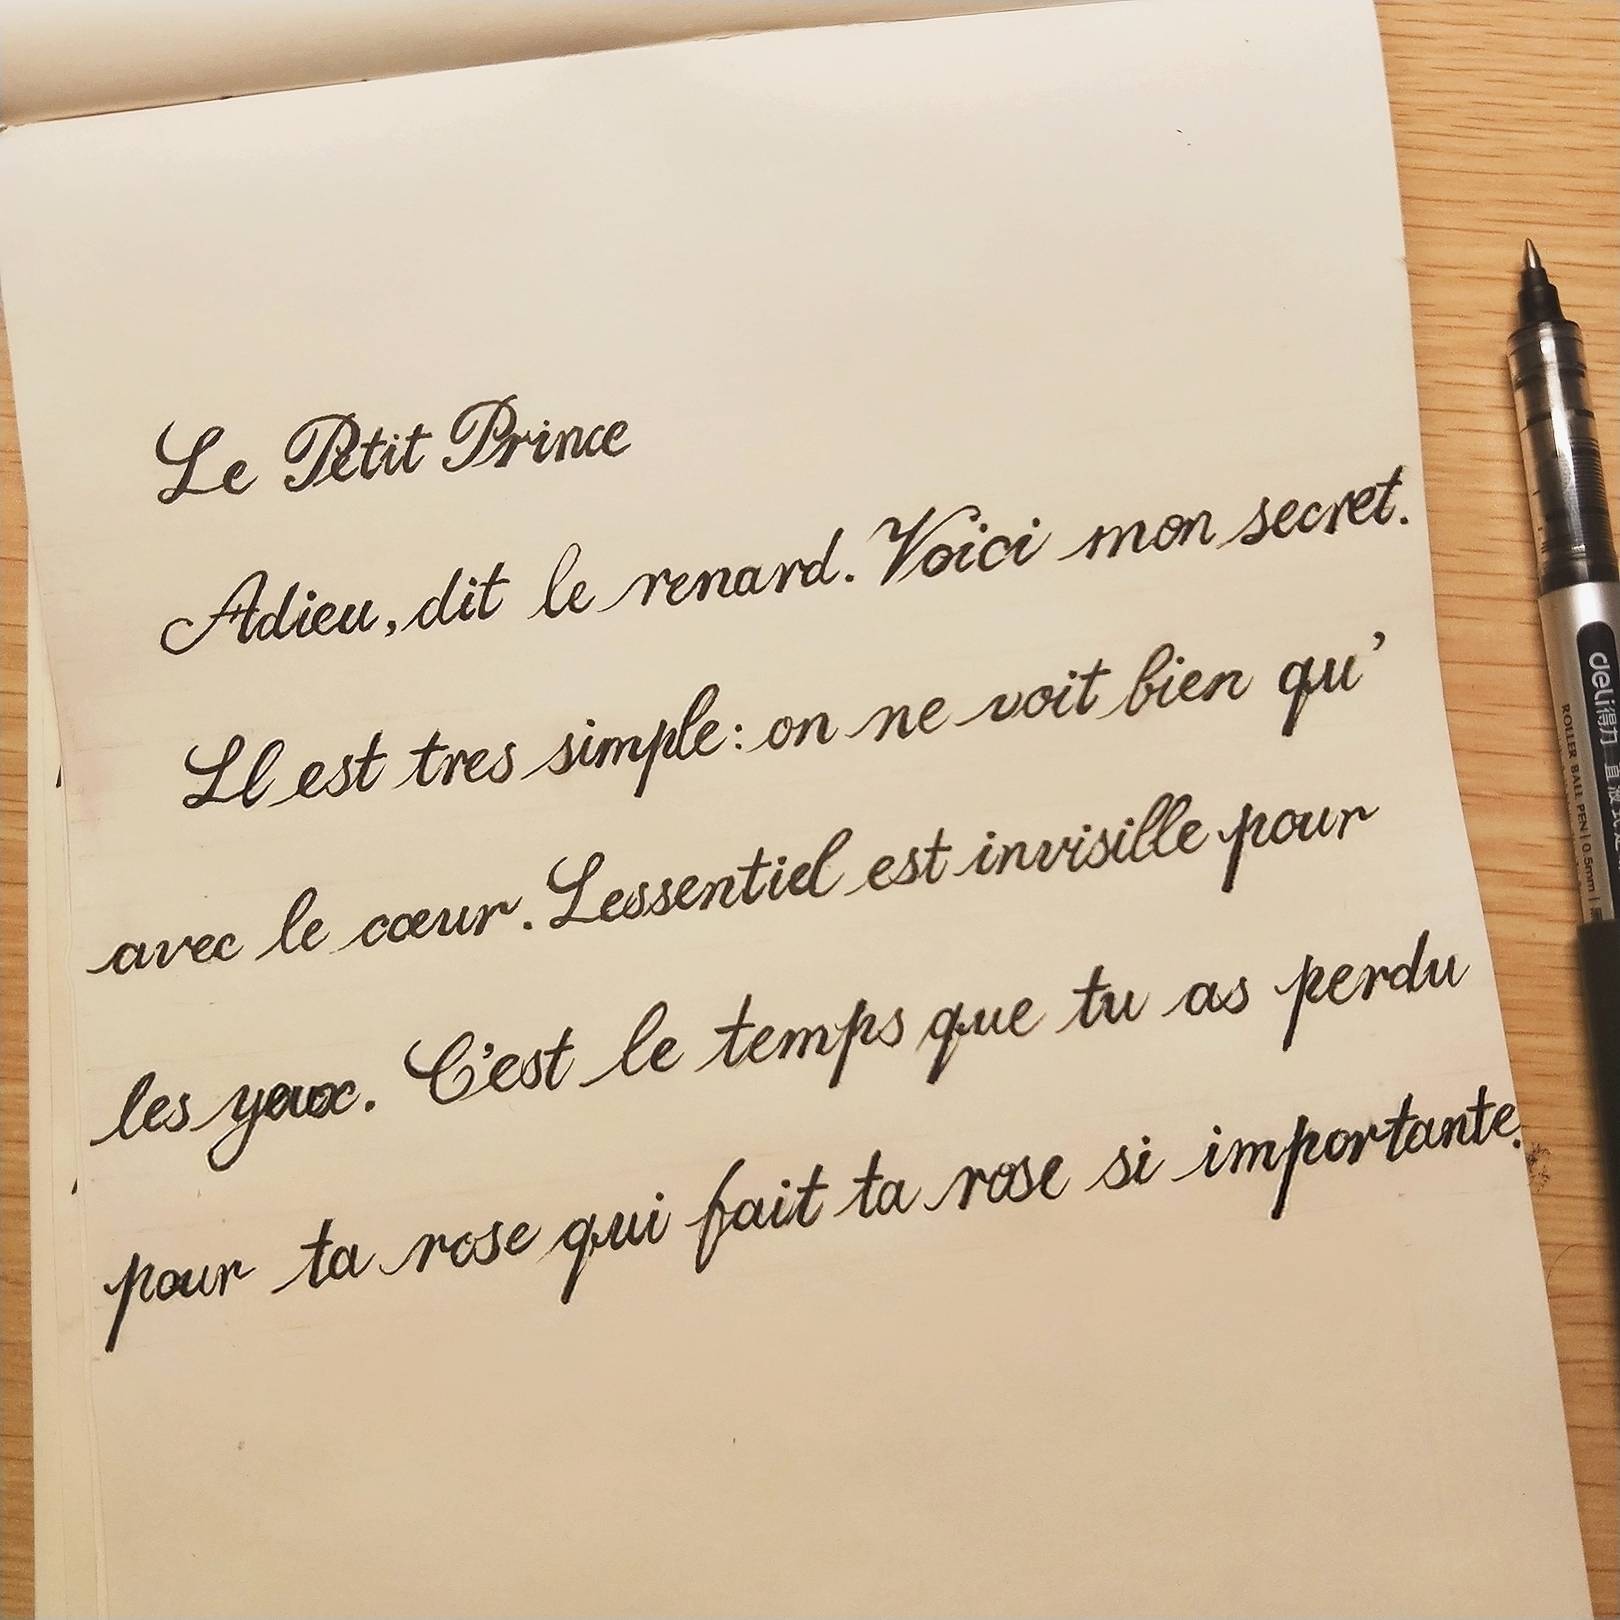 Le Petit Prince
Adieu, dit le renard. Voici mon secret.
Ll est tres simple: on ne voit bien qu'
avec le cœur. Lessentiel est invisille pour
les yeux. C'est le temps que tu as perdu
pour ta rose qui fait ta rose si importante.
deli得力
ROLLER BALL PEN | 0.5mm |